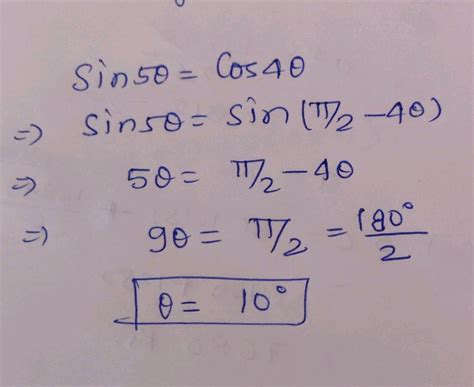 Sin5θ = Cos4θ
⇒ Sin5θ = Sin (π/2 - 4θ)
⇒ 5θ = π/2 - 4θ
⇒ 9θ = π/2 = 180°/2
θ = 10°